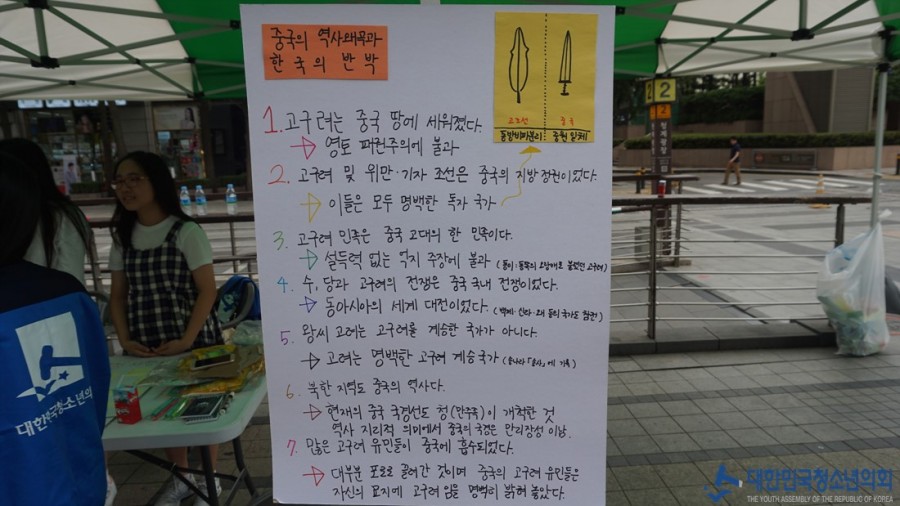 중국의 역사왜곡과
한국의 반박
고조선
중국
동방비파권이
중원 일체
1. 고구려는 중국 땅에 세워졌다.
→ 영토 패권주의에 불과
2. 고구려 및 위만·기자 조선은 중국의 지방 정권이었다.
→ 이들은 모두 명백한 독자 국가
3. 고구려 민족은 중국 고대의 한 민족이다.
→ 설득력 없는 억지 주장에 불과
4. 수, 당과 고구려의 전쟁은 중국 국내 전쟁이었다.
→ 동아시아의 세계 대전이었다.
5. 왕씨 고려는 고구려을 계승한 국가가 아니다.
→ 고려는 명백한 고구려 계승국가
6. 북한 지역도 중국의 역사다.
→ 현재의 중국 국경선도 청(만주족)이 개척한 것
역사 지리적 의미에서 중국의 국경은 만리장성 이남.
7. 많은 고구려 유민들이 중국에 흡수되었다.
→ 대부분 포로로 끌어간 것이며 중국의 고구려 유민들은
자신의 묘지에 고구려 임을 명백히 밝혀 놓았다.
2
2
대한민국청소년의
대한민국청소년의회
THE YOUTH ASSEMBLY OF THE REPUBLIC OF KOREA